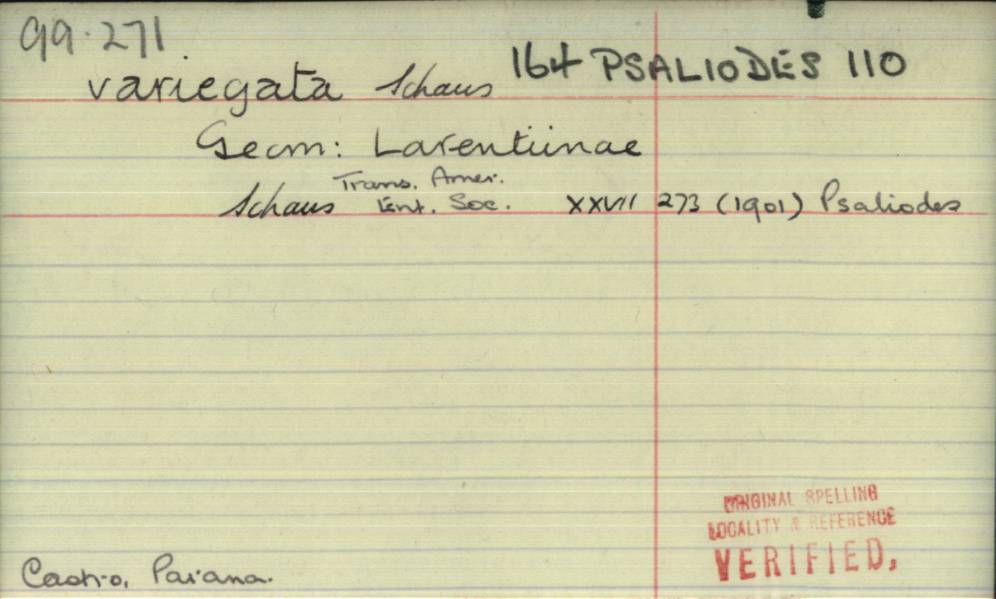 99.271
164 PSALIODES 110
variegata Schaus
Geom: Larentiinae
Trans. Amer.
Schaus Ent. Soc. XXVII 273 (1901) Psaliodes
ORIGINAL SPELLING
LOCALITY & REFERENCE
VERIFIED.
Castro, Parana.